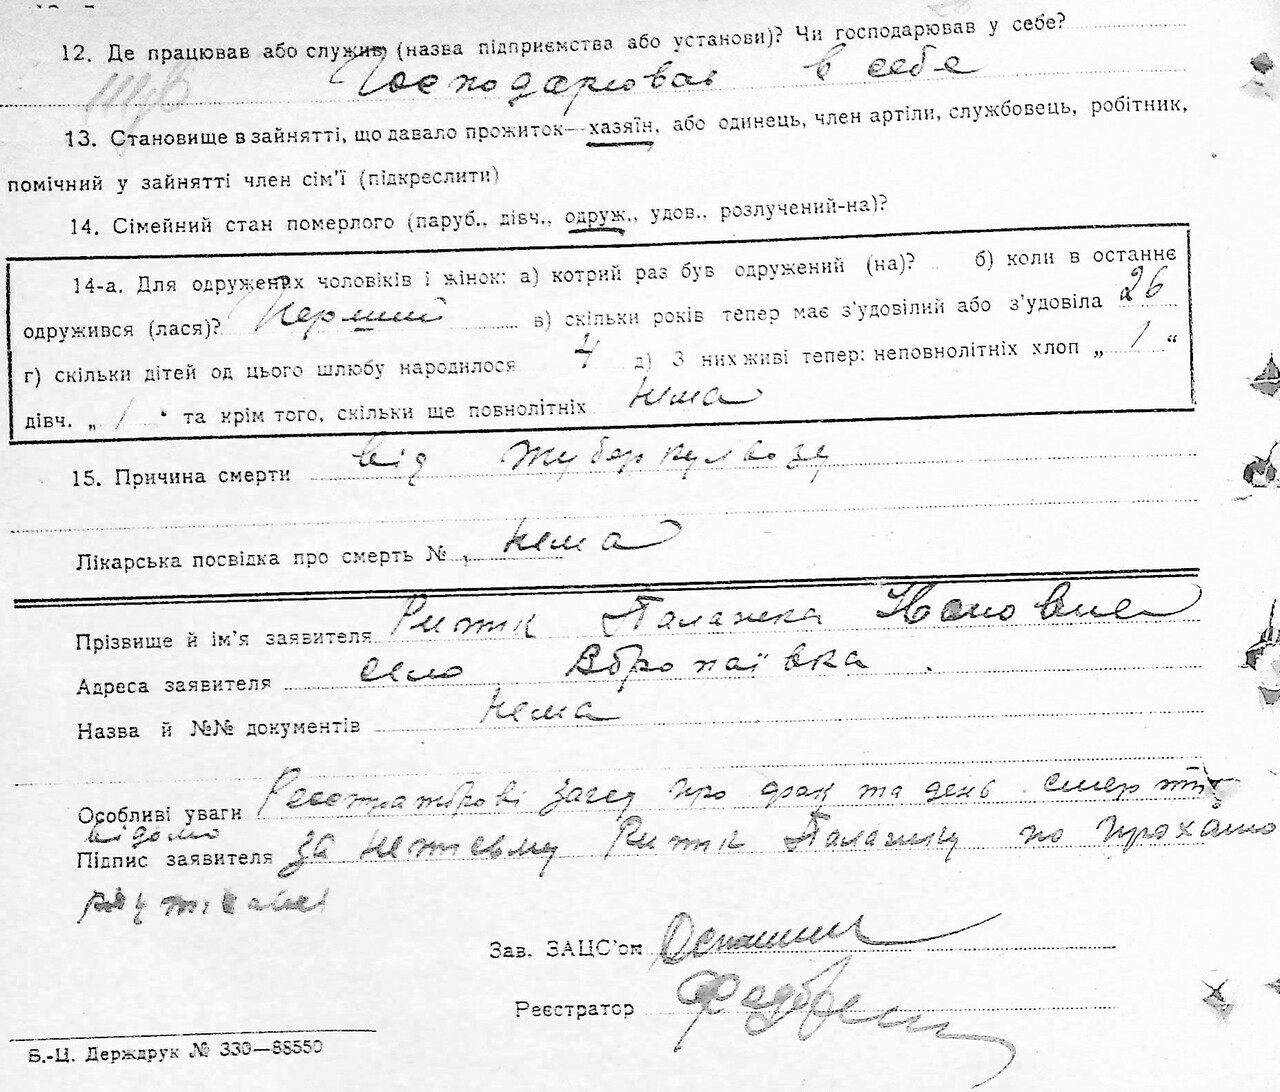 12. Де працював або служив (назва підприємства або установи)? Чи господарював у себе?
Господарював в себе
13. Становище в зайнятті, що давало прожиток—хазяїн, або одинець, член артіли, службовець, робітник,
помічний у зайнятті член сім'ї (підкреслити)
14. Сімейний стан померлого (паруб., дівч., одруж., удов., розлучений-на)?
14-а. Для одружених чоловіків і жінок: а) котрий раз був одружений (на)? б) коли в останнє
одружився (лася)? Перший в) скільки років тепер має з'удовілий або з'удовіла 26
г) скільки дітей од цього шлюбу народилося 4 д) З них живі тепер: неповнолітніх хлоп „ 1 “
дівч. „ 1 “ та крім того, скільки ще повнолітніх нема
15. Причина смерти від туберкульозу
Лікарська посвідка про смерть № нема
Прізвище й ім'я заявителя Ритік Палажка
Адреса заявителя село
Назва й №№ документів нема
Особливі уваги Реєстраторові про фак та день смерти
відомо
Підпис заявителя за Ритік Палажку по
Зав. ЗАЦС'ом
Реєстратор
Б.-Ц. Держдрук № 330—88550